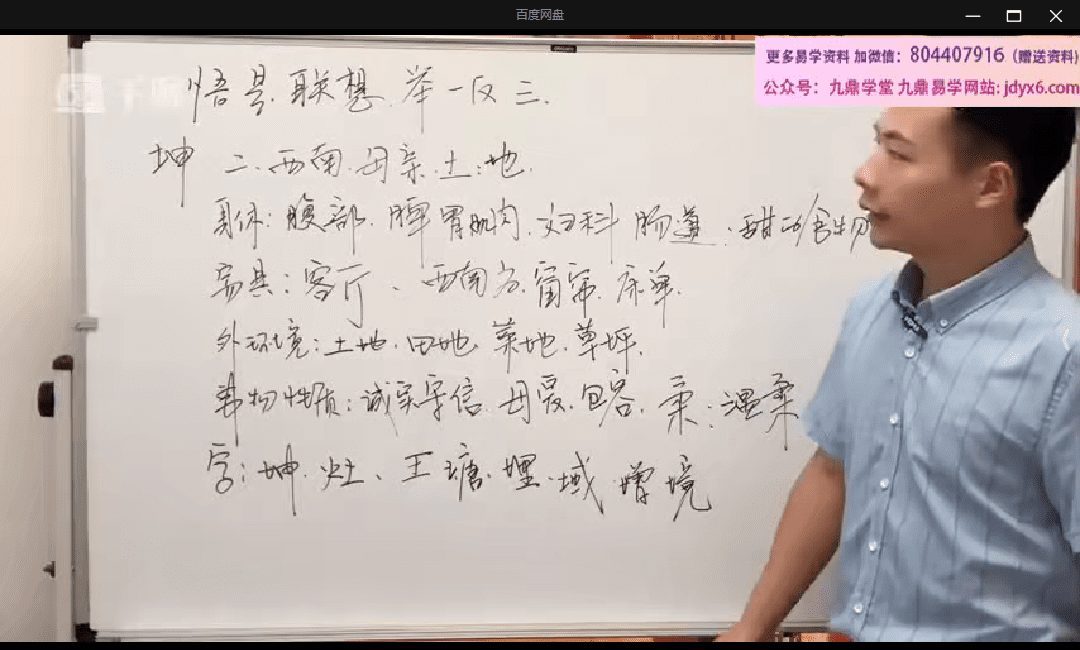 百度网盘
更多易学资料 加微信：804407916（赠送资料）
公众号：九鼎学堂 九鼎易学网站：jdyx6.com
悟景.联想.举一反三.
坤 二.西南.母亲.土:地.
身体:腹部.脾胃肌肉.妇科 肠道.甜的食物
家具:客厅、西南方.窗帘.床单.
外环境:土地.田地.菜地.草坪.
事物性质:诚实守信.母爱.包容.柔:温柔
字:坤.灶、王塘.埋.域 增境